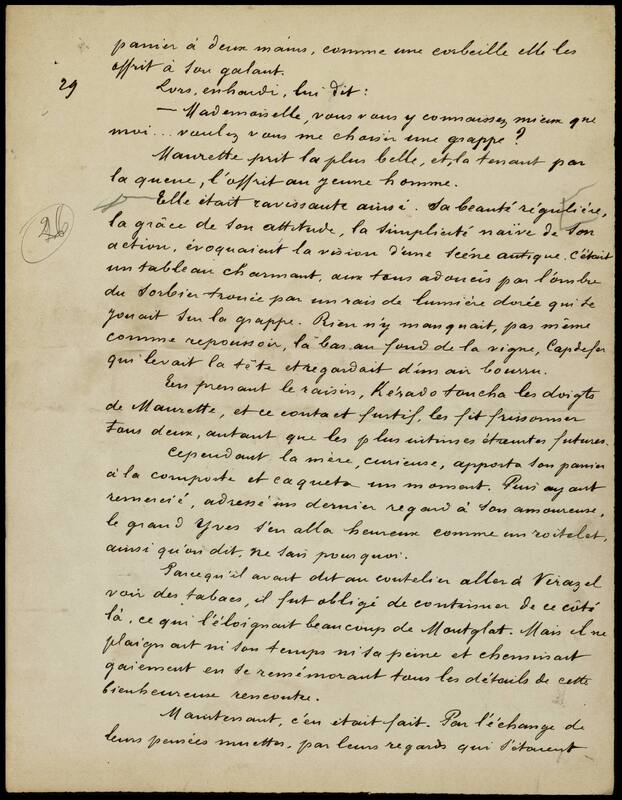 panier à deux mains, comme une corbeille elle les
offrit à son galant.
29
Lors, enhardi, lui dit :
— Mademoiselle, vous vous y connaissez mieux que
moi... voulez vous me choisir une grappe ?
Maurette prit la plus belle, et, la tenant par
la queue, l'offrit au jeune homme.
Elle était ravissante ainsi. Sa beauté régulière,
la grâce de son attitude, la simplicité naïve de son
action, évoquaient la vision d'une scène antique. C'était
un tableau charmant, aux tons adoucis par l'ombre
du sorbier trouée par un rais de lumière dorée qui se
jouait sur la grappe. Rien n'y manquait, pas même
comme repoussoir, là bas au fond de la vigne, Capdefer
qui levait la tête et regardait d'un air bourru.
En prenant le raisin, Kérado toucha les doigts
de Maurette, et ce contact furtif, les fit frissonner
tous deux, autant que les plus intimes étreintes futures.
Cependant la mère, curieuse, apporta son panier
à la comporte et caqueta un moment. Puis ayant
remercié, adressé un dernier regard à son amoureuse,
le grand Yves s'en alla heureux comme un roitelet,
ainsi qu'on dit, ne sais pourquoi.
Parcequ'il avait dit au coutelier aller à Virazel
voir des tabacs, il fut obligé de continuer de ce côté
là, ce qui l'éloignait beaucoup de Montglat. Mais il ne
plaignait ni son temps ni sa peine et cheminait
gaiement en se remémorant tous les détails de cette
bienheureuse rencontre.
Maintenant, c'en était fait. Par l'échange de
leurs pensées muettes, par leurs regards qui s'étaient